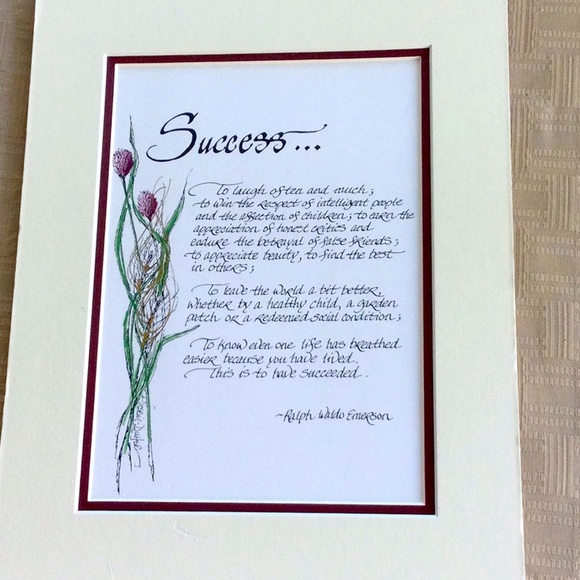 Success...
To laugh often and much;
to win the respect of intelligent people
and the affection of children; to earn the
appreciation of honest critics and
endure the betrayal of false friends;
to appreciate beauty, to find the best
in others;
To leave the world a bit better,
whether by a healthy child, a garden
patch or a redeemed social condition;
To know even one life has breathed
easier because you have lived.
This is to have succeeded.
~Ralph Waldo Emerson